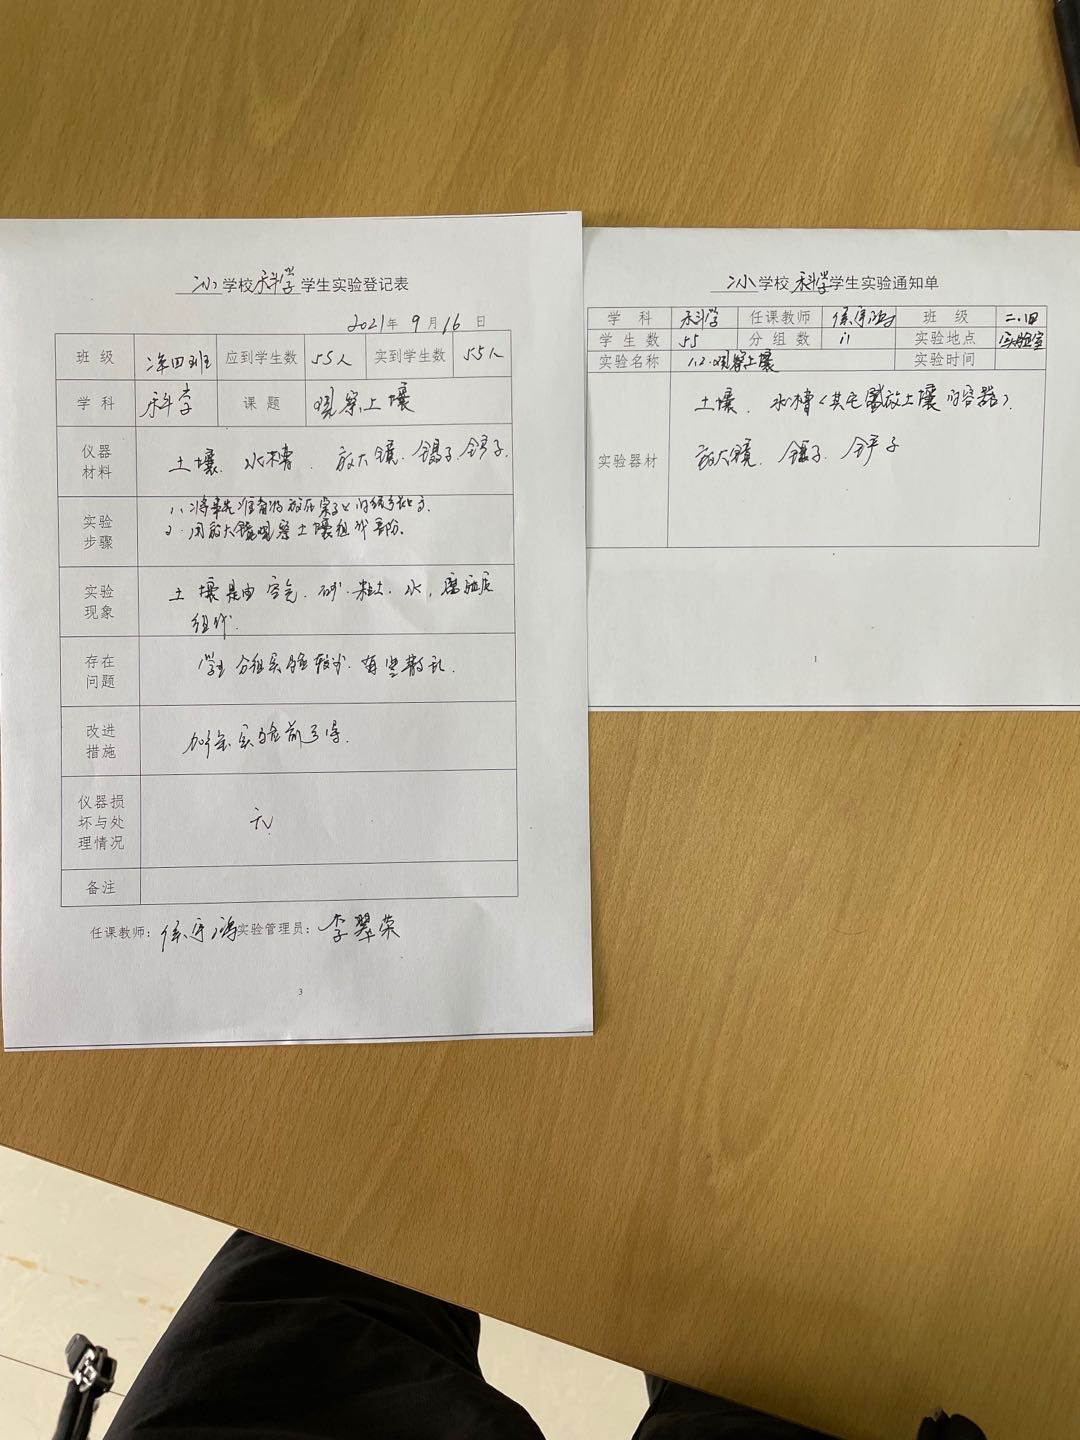 小学校科学学生实验登记表
2021年9月16日
班级 二年四班 应到学生数 55人 实到学生数 55人
学科 科学 课题 观察土壤
仪器材料 土壤、水槽、放大镜、镊子、铲子.
实验步骤
2.用放大镜观察土壤组成部份.
实验现象 土壤是由空气、砂、粘土、水,腐殖质
组成.
存在问题 学生分组实验 有些散乱.
改进措施 加强实验前
仪器损坏与处理情况 无
备注
任课教师: 实验管理员: 李翠荣
3
小学校科学学生实验通知单
学科 科学 任课教师 班级 二.四
学生数 55 分组数 11 实验地点 实验室
实验名称 1.2.观察土壤 实验时间
实验器材 土壤、水槽(其它 放土壤的容器).
放大镜、镊子、铲子
1